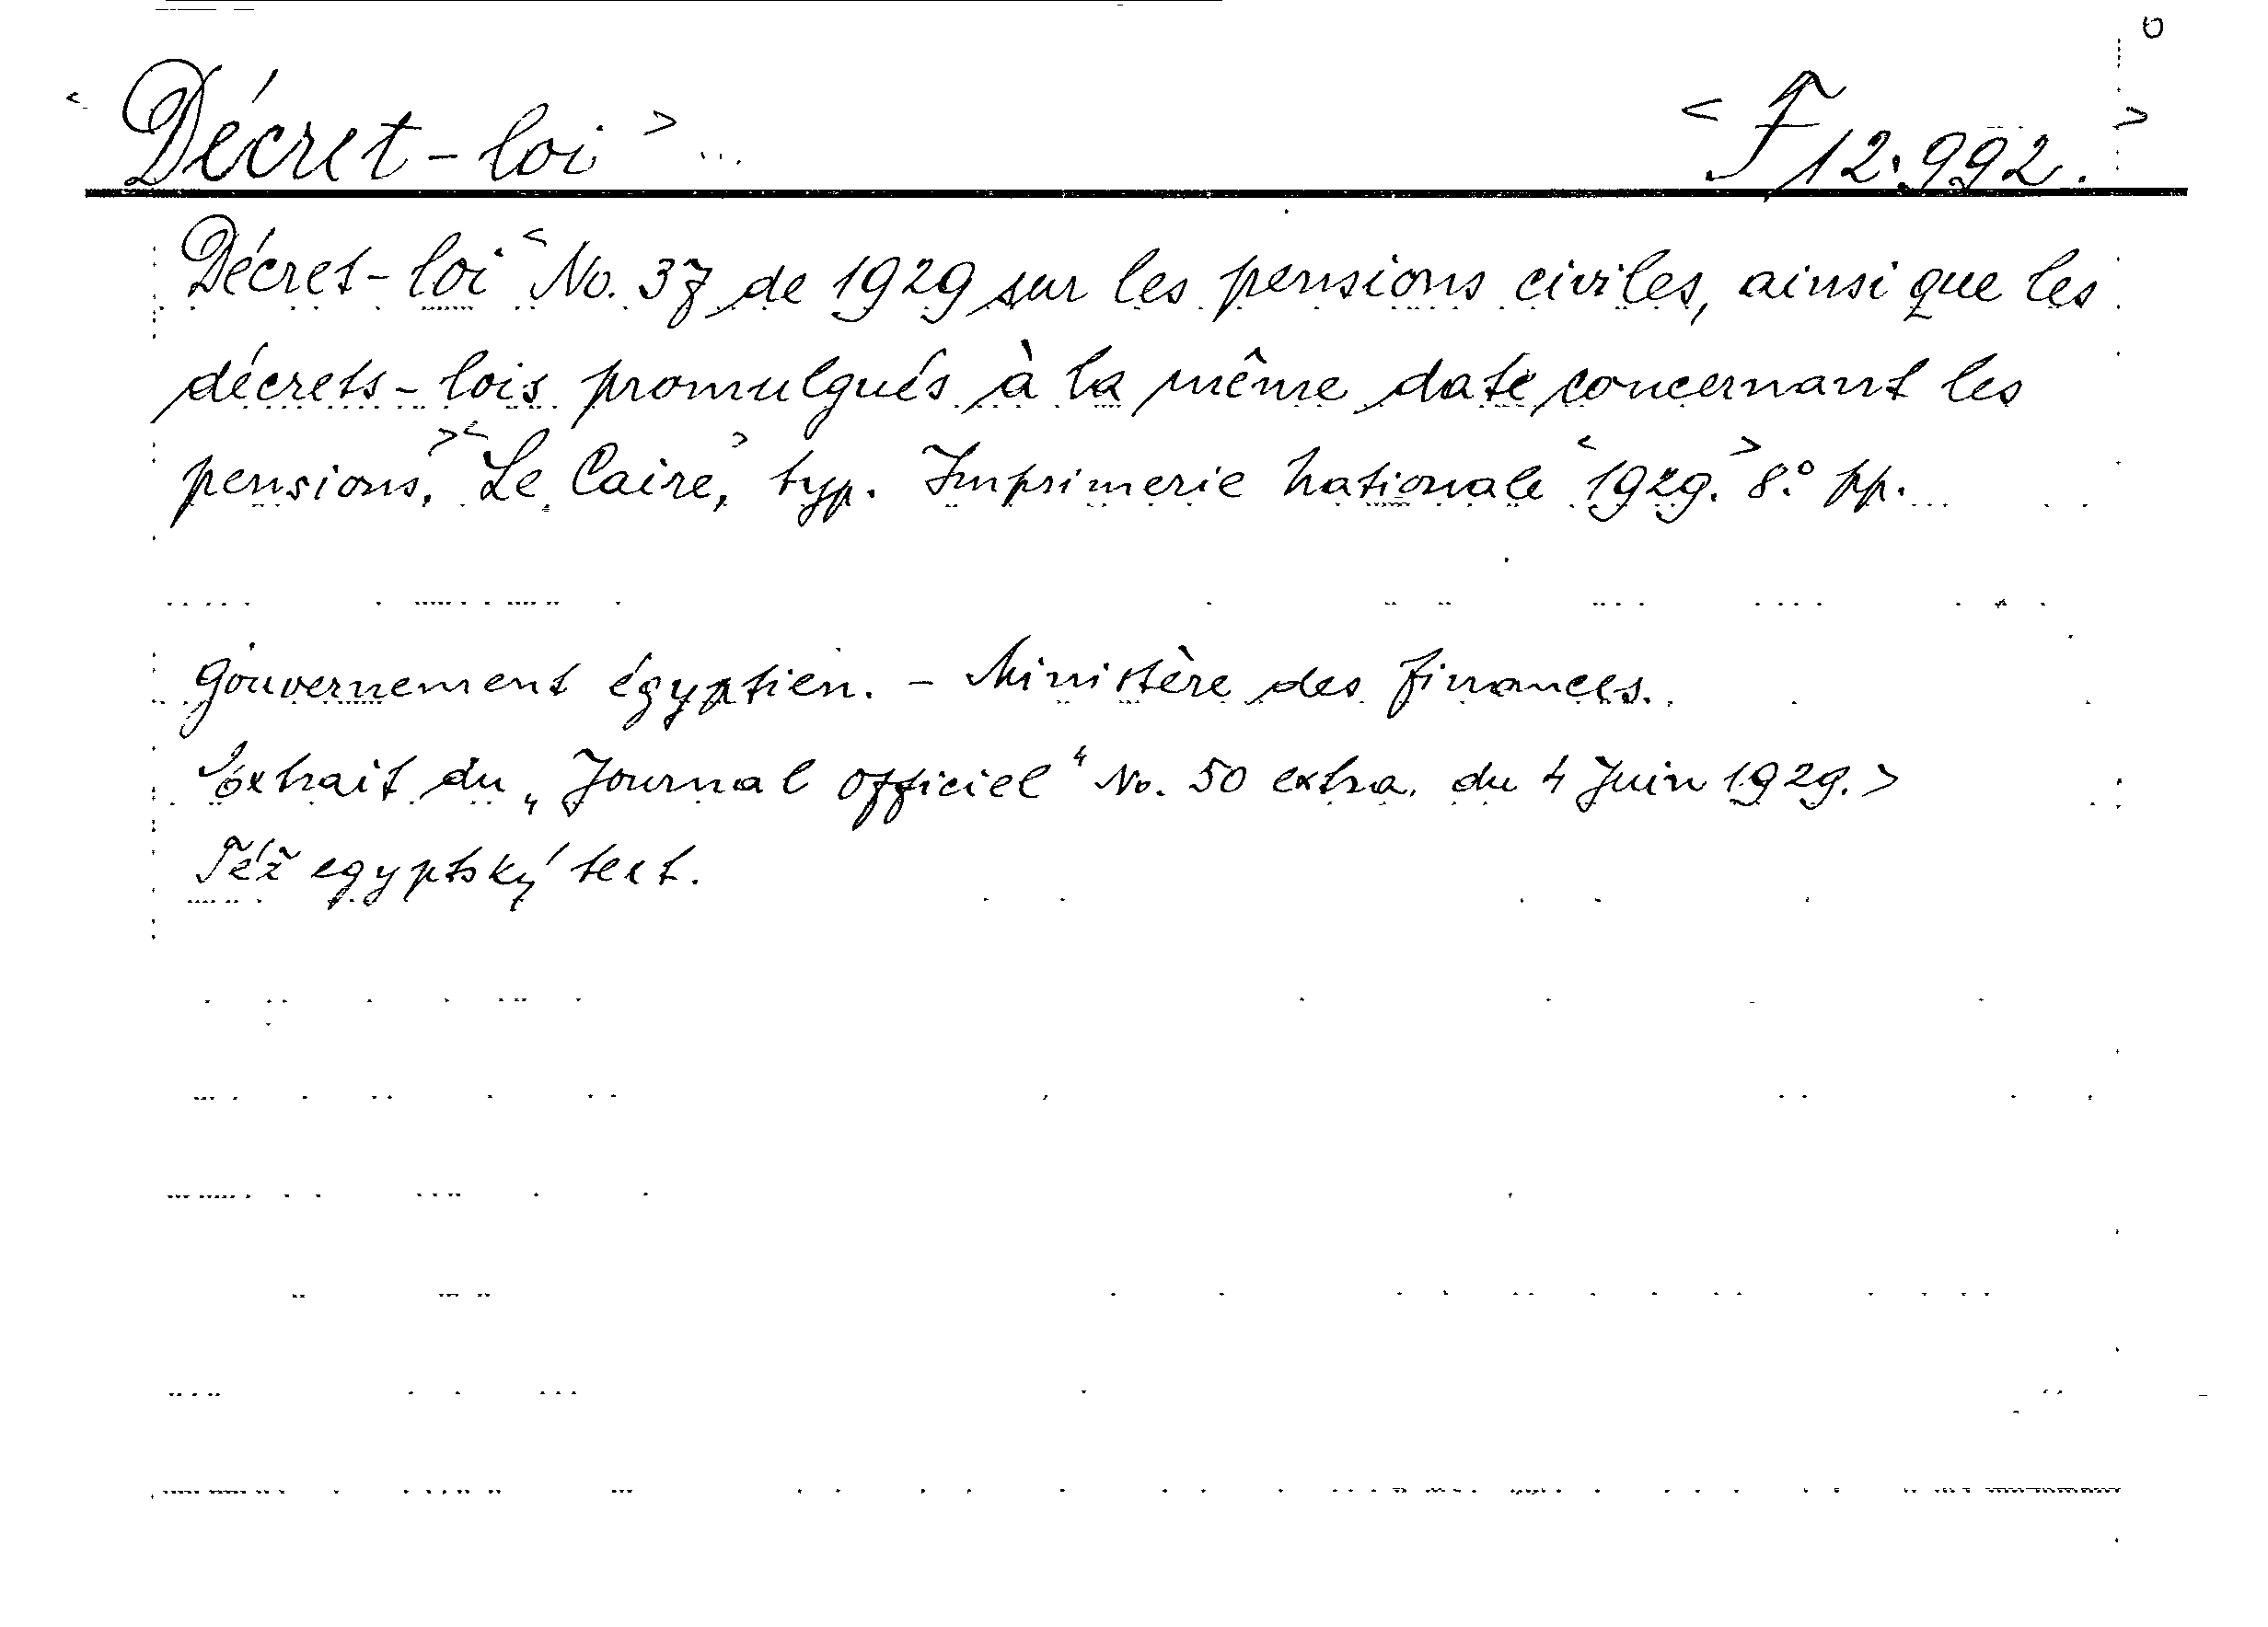 < Décret-loi > < F 12.992. >
Décret-loi < No. 37 de 1929 sur les pensions civiles, ainsi que les
décrets-lois promulgués à la même date concernant les
pensions. > < Le Caire, > typ. Imprimerie Nationale < 1929. > 8.° pp.
Gouvernement égyptien. – Ministère des finances.
Extrait du „Journal officiel“ No. 50 extra. du 4 Juin 1929. >
Též egyptský text.